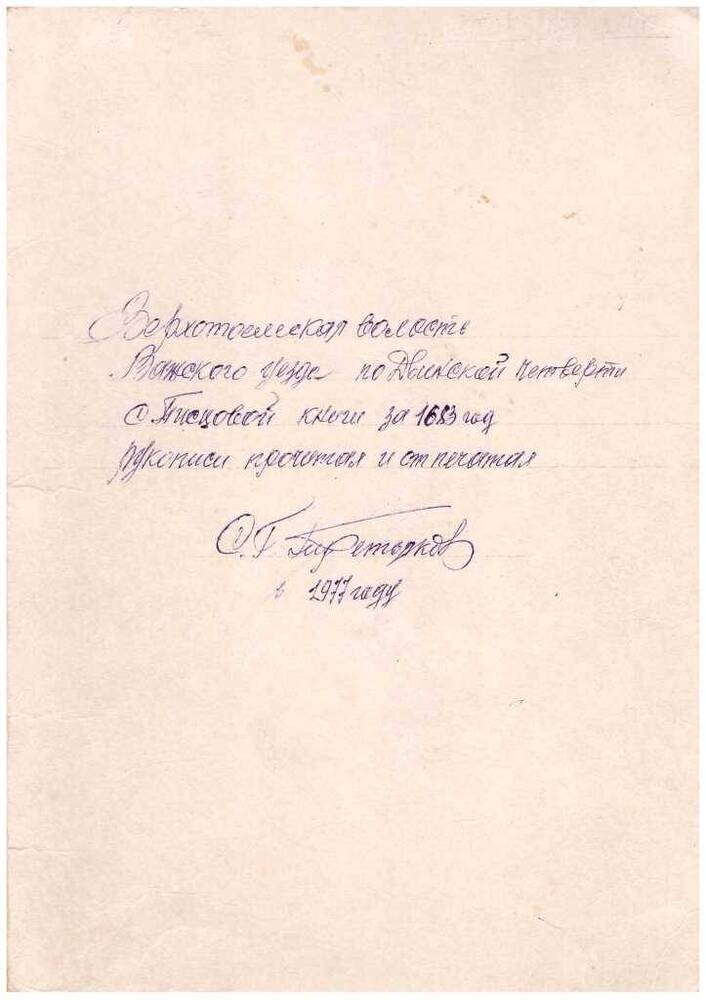 Верхотоемская волость
Важского уезда по Двинской четверти
с Писцовой книги за 1683 год
рукописи прочитал и отпечатал
О. Г. Третьяков
в 1977 году